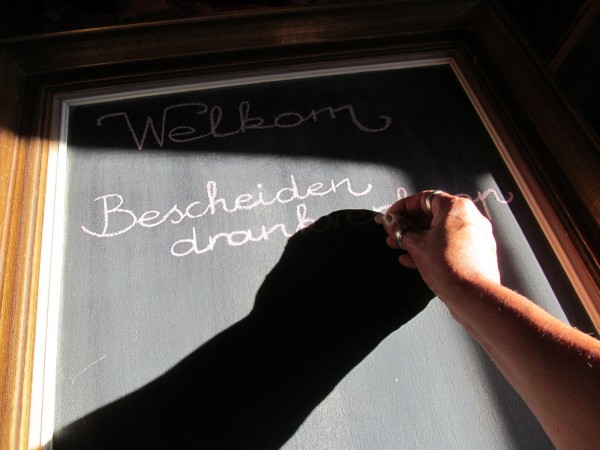 Welkom
Bescheiden
drank